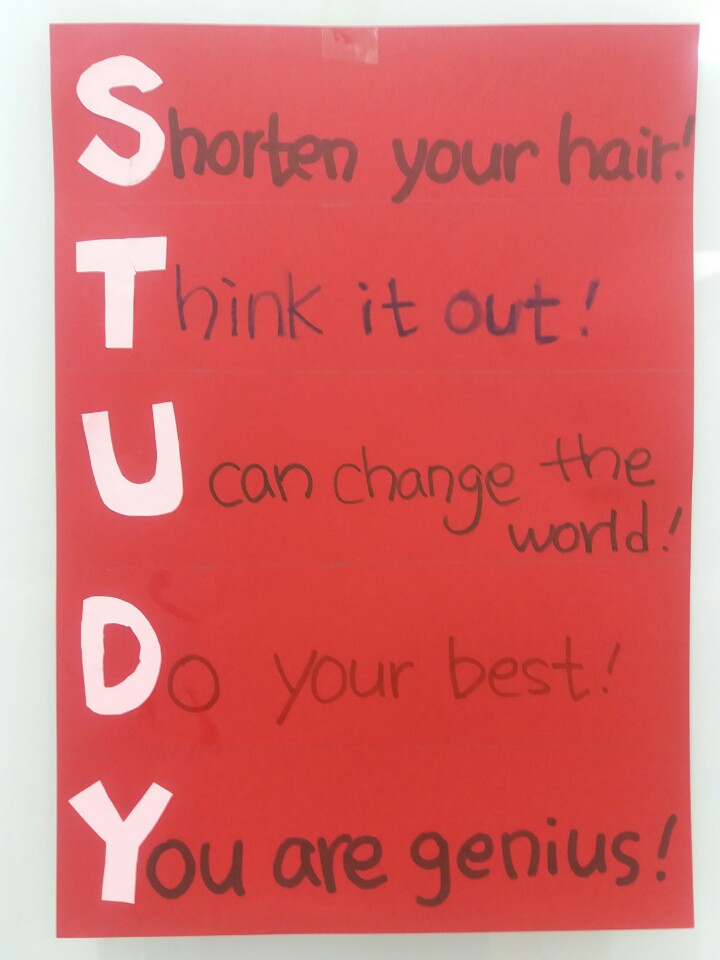 Shorten your hair!
Think it out!
U can change the
world!
Do your best!
You are genius!